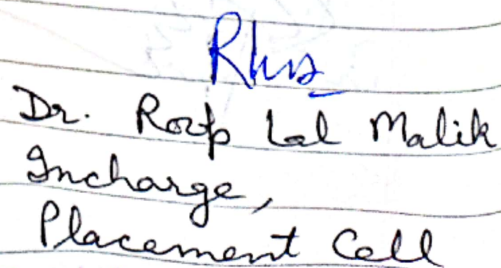 Dr. Roop Lal Malik
Incharge,
Placement Cell